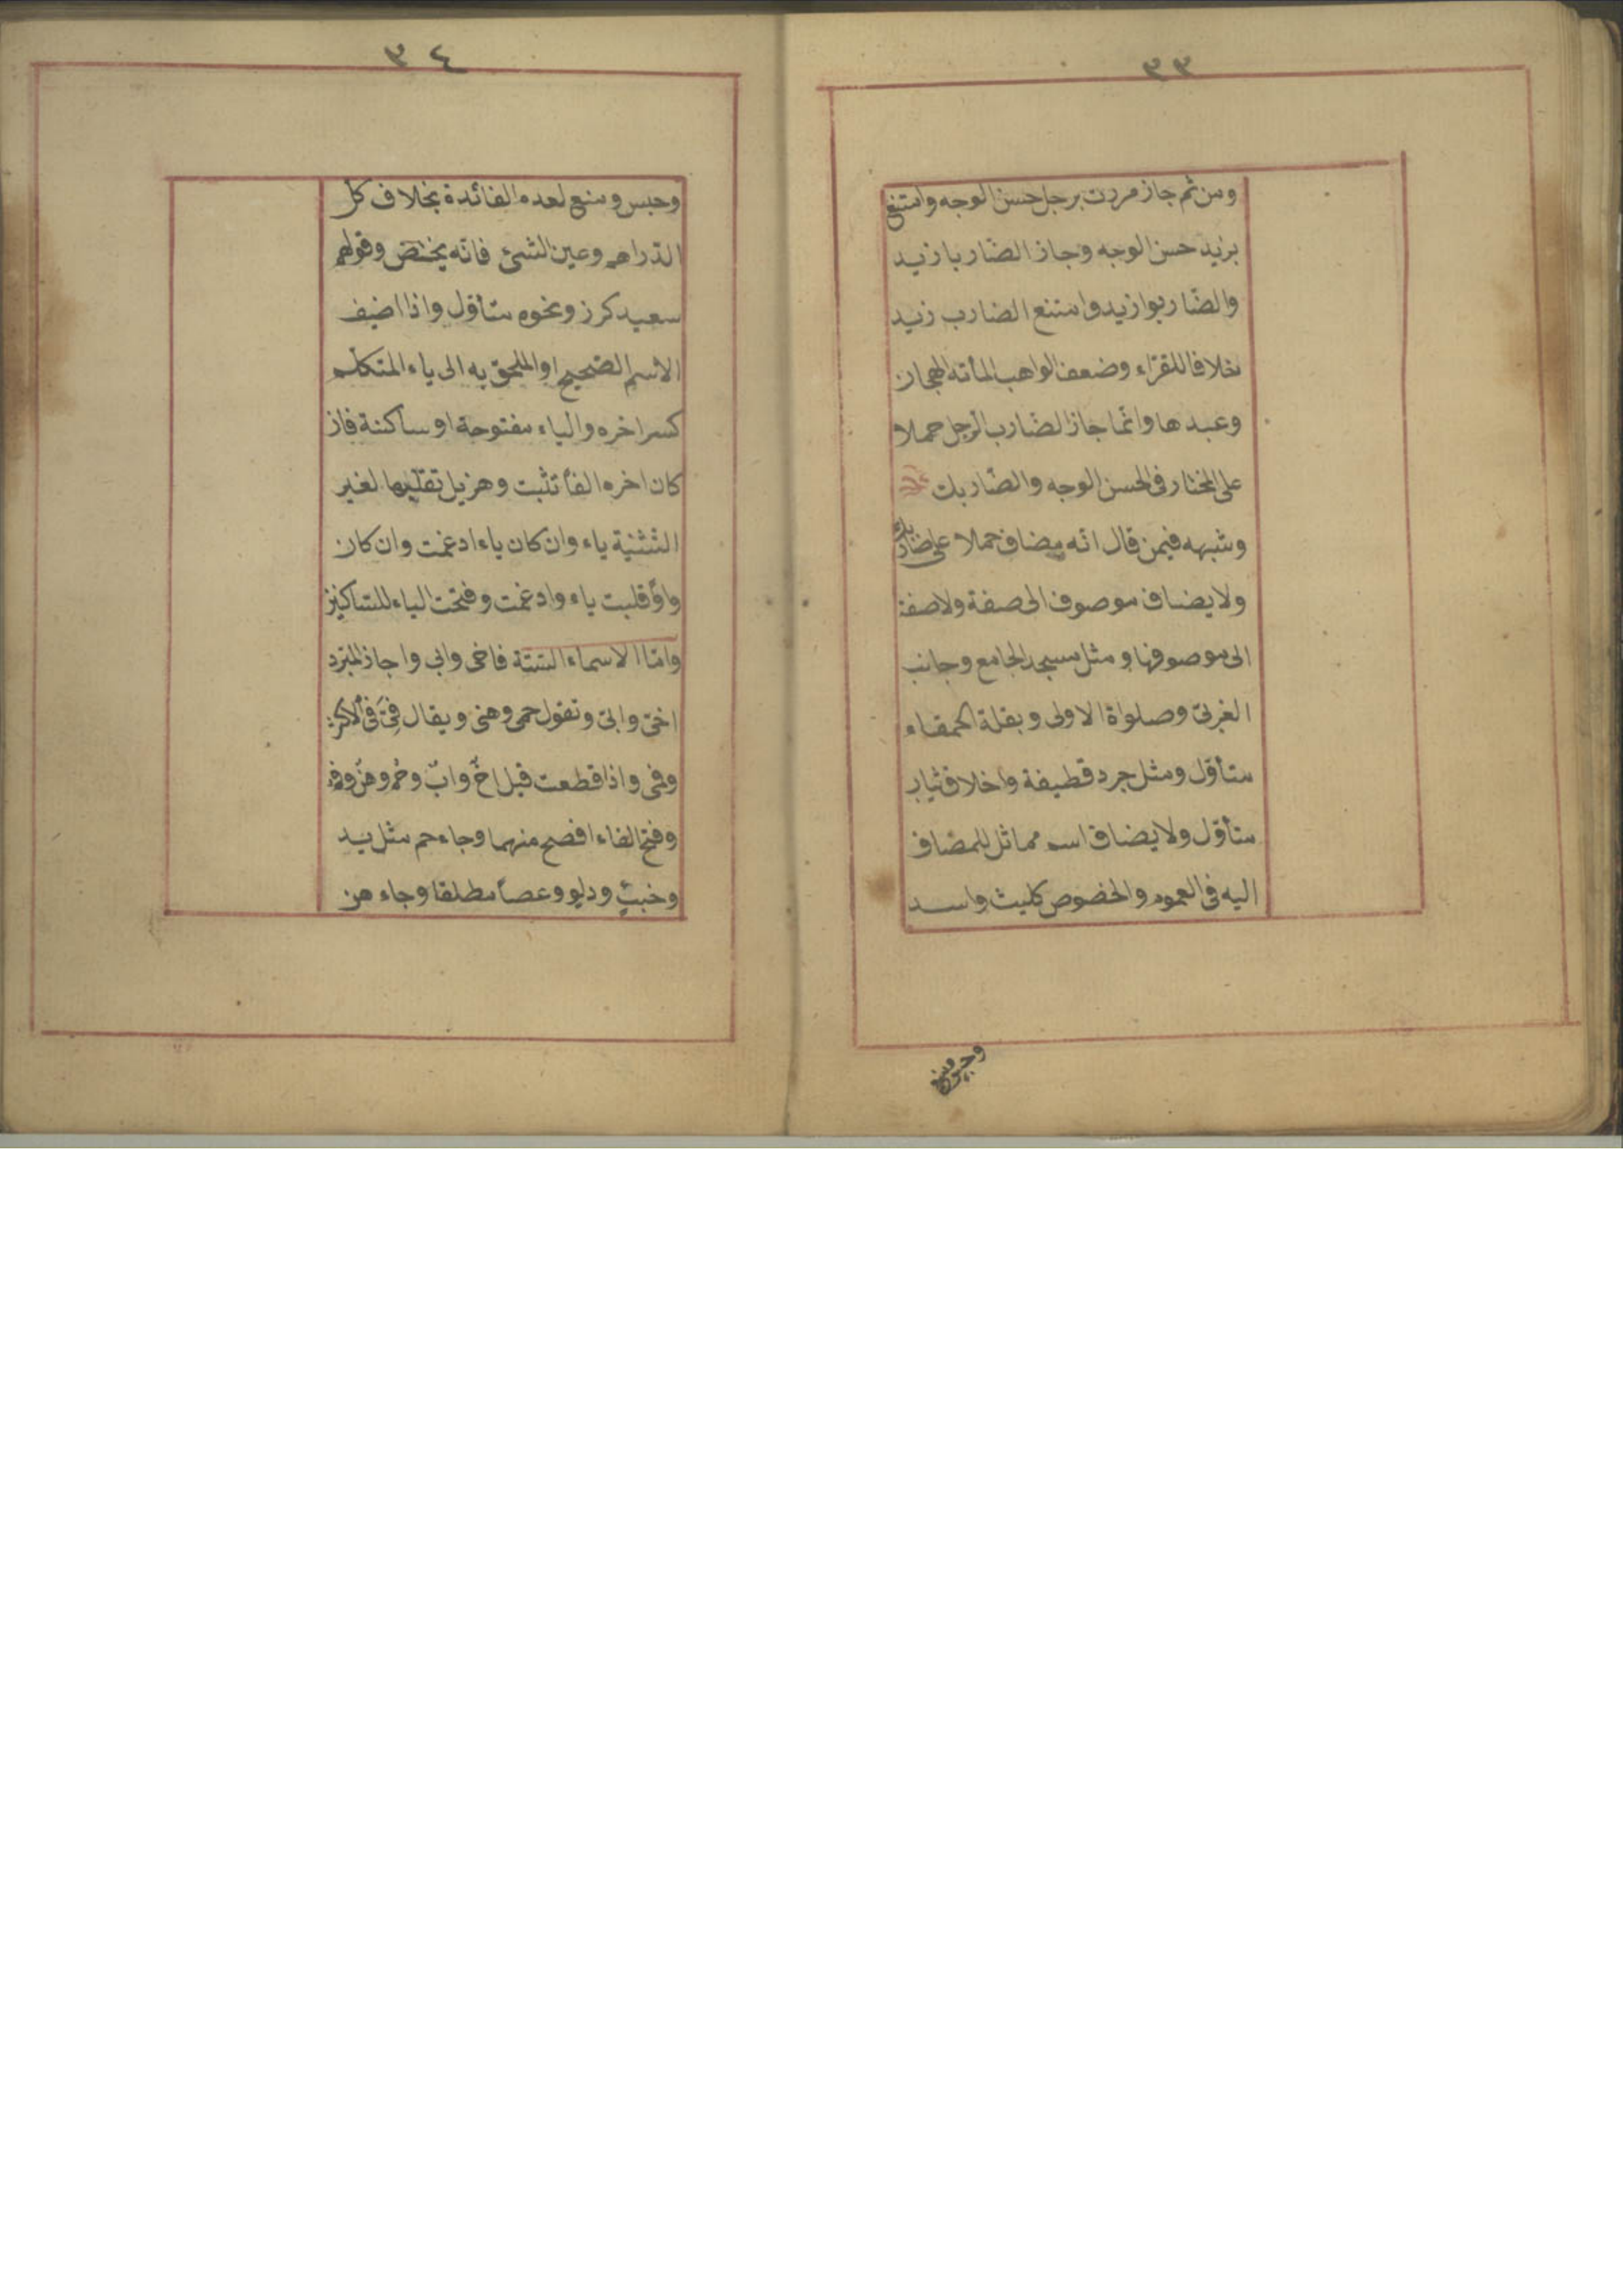 ٣٣
ومن ثم جاز مررت برجل حسن الوجه وامتنع
بزيد حسن الوجه وجاز الضّاربا زيد
والضّاربوا زيد وامتنع الضارب زيد
خلافا للقرّاء وضعف الواهب المأته الهجان
وعبدها وانّما جاز الضّارب الرّجل حملا
على المختار فى الحسن الوجه والضّاربك
وشبهه فيمن قال انّه مضاف حملا على ضاربك
ولا يضاف موصوف الى صفة ولا صفة
الى موصوفها ومثل مسجد الجامع وجانب
الغربىّ وصلواة الاولى وبقلة الحمقاء
متأوّل ومثل جرد قطيفة واخلاق ثياب
متأوّل ولا يضاف اسم مماثل للمضاف
اليه فى العموم والخصوص كليث واسد
وحبس ومنع
٣٤
وحبس ومنع لعدم الفائدة بخلاف كلّ
الدّراهم وعين الشئ فانّه يختصّ وقولهم
سعيد كرز ونحوه متأوّل واذا اضيف
الاسم الصّحيح او الملحق به الى ياء المتكلّم
كسر اخره والياء مفتوحة او ساكنة فان
كان اخره الفاً تثبت وهزيل تقلّبها لغير
التّثنية ياء وان كان ياء ادغمت وان كان
واوً قلبت ياء وادغمت وفتحت الياء للسّاكنين
وامّا الاسماء السّتّة فاخى وابى واجاز المبرّد
اخىّ وابىّ وتقول حمى وهنى ويقال فىّ فى الاكثر
وفمى واذا قطعت قيل اخٌ وابٌ وحمٌ وهنٌ وفم
وفتح الفاء افصح منهما وجاء حم مثل يد
وخبئٍ ودلو وعصاً مطلقا وجاء هن